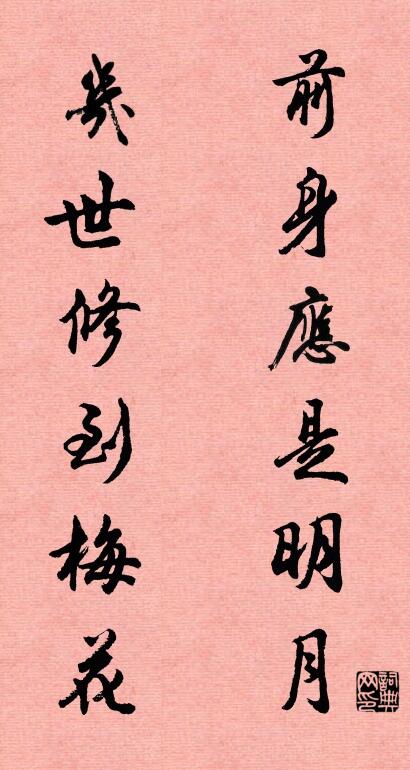 前身應是明月
幾世修到梅花
詞典网印